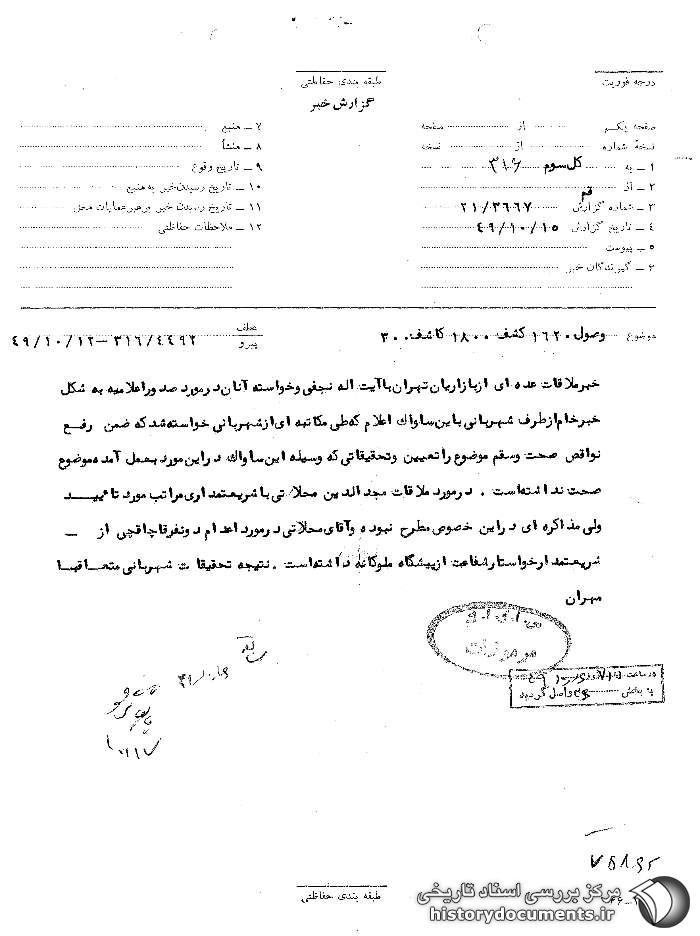 طبقه بندی حفاظتی
درجه فوریت
گزارش خبر
صفحه یکم از صفحه
نسخهٔ شماره از نسخه
۱ ـ به کل سوم ۳۱۶
۲ ـ از قم
۳ ـ شماره گزارش ۲۱/۳۶۶۷
۴ ـ تاریخ گزارش ۴۹/۱۰/۱۵
۵ ـ پیوست
۶ ـ گیرندگان خبر
۷ ـ منبع
۸ ـ منشأ
۹ ـ تاریخ وقوع
۱۰ ـ تاریخ رسیدن خبر به منبع
۱۱ ـ تاریخ رسیدن خبر به رهبر عملیات محل
۱۲ ـ ملاحظات حفاظتی
موضوع وصول ۱۶۲۰ کشف ۱۸۰۰ کاشف ۳۰۰
عطف
پیرو ۳۱۶/۴۴۹۲ - ۴۹/۱۰/۱۲
خبر ملاقات عده ای از بازاریان تهران با آیت اله نجفی و خواسته آنان در مورد صدور اعلامیه به شکل
خبر خام از طرف شهربانی باین ساواک اعلام که طی مکاتبه ای از شهربانی خواسته شد که ضمن رفع
نواقص صحت وسقم موضوع را تعیین وتحقیقاتی که وسیله این ساواک در این مورد بعمل آمده موضوع
صحت نداشته است . در مورد ملاقات مجد الدین محلاتی با شریعتمداری مراتب مورد تایید
ولی مذاکره ای در این خصوص مطرح نبوده و آقای محلاتی در مورد اعدام دو نفر قاچاقچی از
شریعتمدار خواستار شفاعت از پیشگاه ملوکانه داشته است . نتیجه تحقیقات شهربانی متعاقبا
مهران
مرموزات
در ساعت
به بخش واصل گردید
طبقه بندی حفاظتی
مرکز بررسی اسناد تاریخی
historydocuments.ir